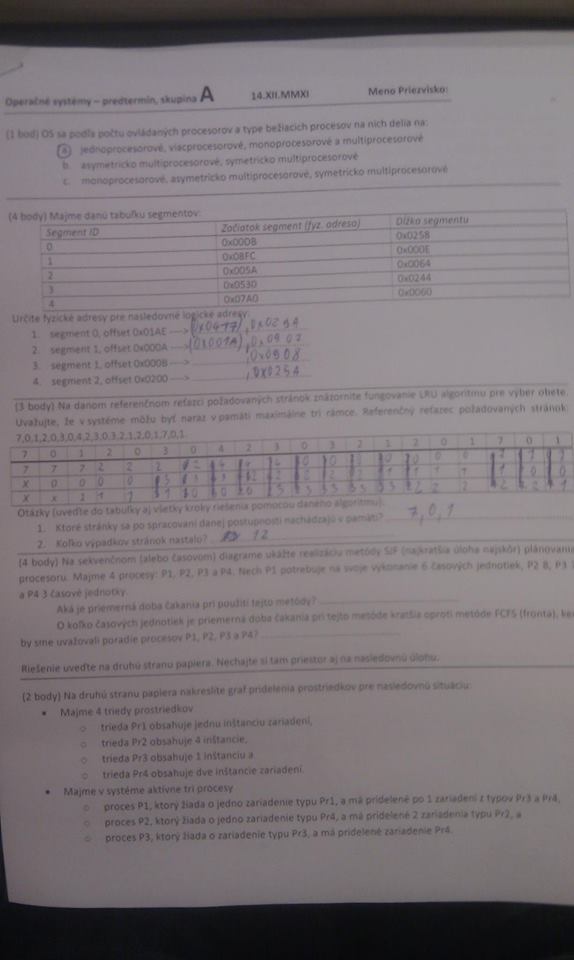 Operačné systémy – predtermín, skupina A 14.XII.MMXI Meno Priezvisko:
(1 bod) OS sa podľa počtu ovládaných procesorov a type bežiacich procesov na nich delia na:
a. jednoprocesorové, viacprocesorové, monoprocesorové a multiprocesorové
b. asymetricko multiprocesorové, symetricko multiprocesorové
c. monoprocesorové, asymetricko multiprocesorové, symetricko multiprocesorové
(4 body) Majme danú tabuľku segmentov:
Segment ID Začiatok segment (fyz. adresa) Dĺžka segmentu
0 0x00DB 0x0258
1 0x08FC 0x000E
2 0x005A 0x0064
3 0x0530 0x0244
4 0x07A0 0x0060
Určite fyzické adresy pre nasledovné logické adresy:
1. segment 0, offset 0x01AE ---> (0x0417), 0x029A
2. segment 1, offset 0x000A ---> (0x001A), 0x0907
3. segment 1, offset 0x000B ---> , 0x0908
4. segment 2, offset 0x0200 ---> , 0x025A
(3 body) Na danom referenčnom reťazci požadovaných stránok znázornite fungovanie LRU algoritmu pre výber obete.
Uvažujte, že v systéme môžu byť naraz v pamäti maximálne tri rámce. Referenčný reťazec požadovaných stránok:
7,0,1,2,0,3,0,4,2,3,0,3,2,1,2,0,1,7,0,1.
7 0 1 2 0 3 0 4 2 3 0 3 2 1 2 0 1 7 0 1
7 7 7 2 2 2
X 0 0 0 0
X X 1 1 1
Otázky (uveďte do tabuľky aj všetky kroky riešenia pomocou daného algoritmu).
1. Ktoré stránky sa po spracovaní danej postupnosti nachádzajú v pamäti? 7,0,1
2. Koľko výpadkov stránok nastalo? 12
(4 body) Na sekvenčnom (alebo časovom) diagrame ukážte realizáciu metódy SJF (najkratšia úloha najskôr) plánovania
procesoru. Majme 4 procesy: P1, P2, P3 a P4. Nech P1 potrebuje na svoje vykonanie 6 časových jednotiek, P2 8, P3
a P4 3 časové jednotky.
Aká je priemerná doba čakania pri použití tejto metódy?
O koľko časových jednotiek je priemerná doba čakania pri tejto metóde kratšia oproti metóde FCFS (fronta),
by sme uvažovali poradie procesov P1, P2, P3 a P4?
Riešenie uveďte na druhú stranu papiera. Nechajte si tam priestor aj na nasledovnú úlohu.
(2 body) Na druhú stranu papiera nakreslite graf pridelenia prostriedkov pre nasledovnú situáciu:
• Majme 4 triedy prostriedkov
o trieda Pr1 obsahuje jednu inštanciu zariadení,
o trieda Pr2 obsahuje 4 inštancie,
o trieda Pr3 obsahuje 1 inštanciu a
o trieda Pr4 obsahuje dve inštancie zariadení.
• Majme v systéme aktívne tri procesy
o proces P1, ktorý žiada o jedno zariadenie typu Pr1, a má pridelené po 1 zariadení z typov Pr3 a Pr4,
o proces P2, ktorý žiada o jedno zariadenie typu Pr4, a má pridelené 2 zariadenia typu Pr2, a
o proces P3, ktorý žiada o zariadenie typu Pr3, a má pridelené zariadenie Pr4.